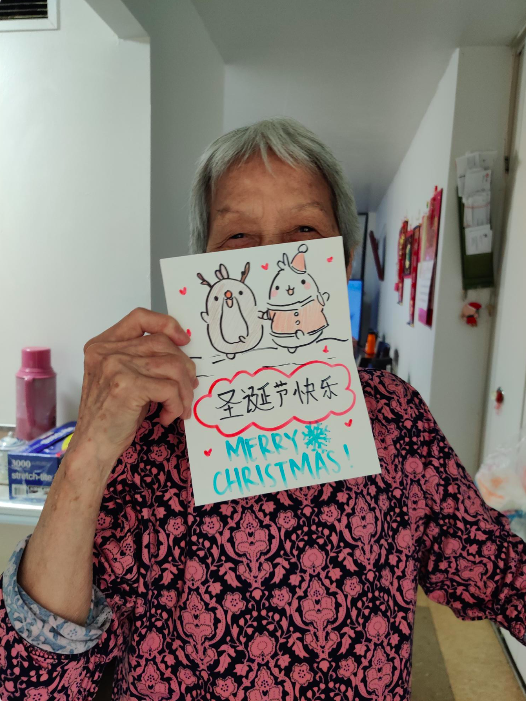 圣诞节快乐
MERRY
CHRISTMAS!
3000
stretch-tite